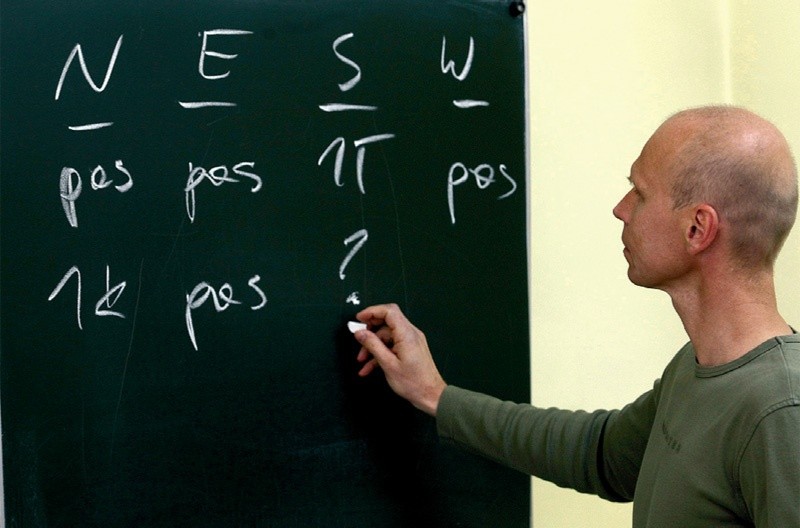 N E S W
pas pas 1T pas
1k pas ?